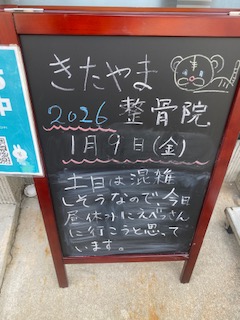 きたやま
2026 整骨院
1月9日(金)
土日は混雑
しそうなので今日
昼休みにえべっさん
に行こうと思って
います。